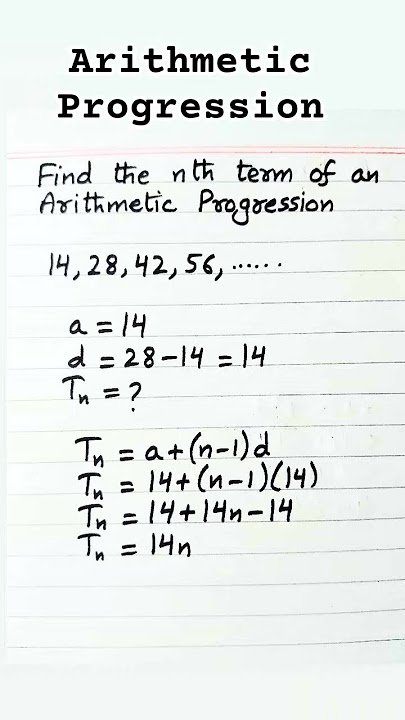 Arithmetic
Progression
Find the nth term of an
Arithmetic Progression
14, 28, 42, 56, ......
a = 14
d = 28 - 14 = 14
Tn = ?
Tn = a + (n-1)d
Tn = 14 + (n-1)(14)
Tn = 14 + 14n - 14
Tn = 14n